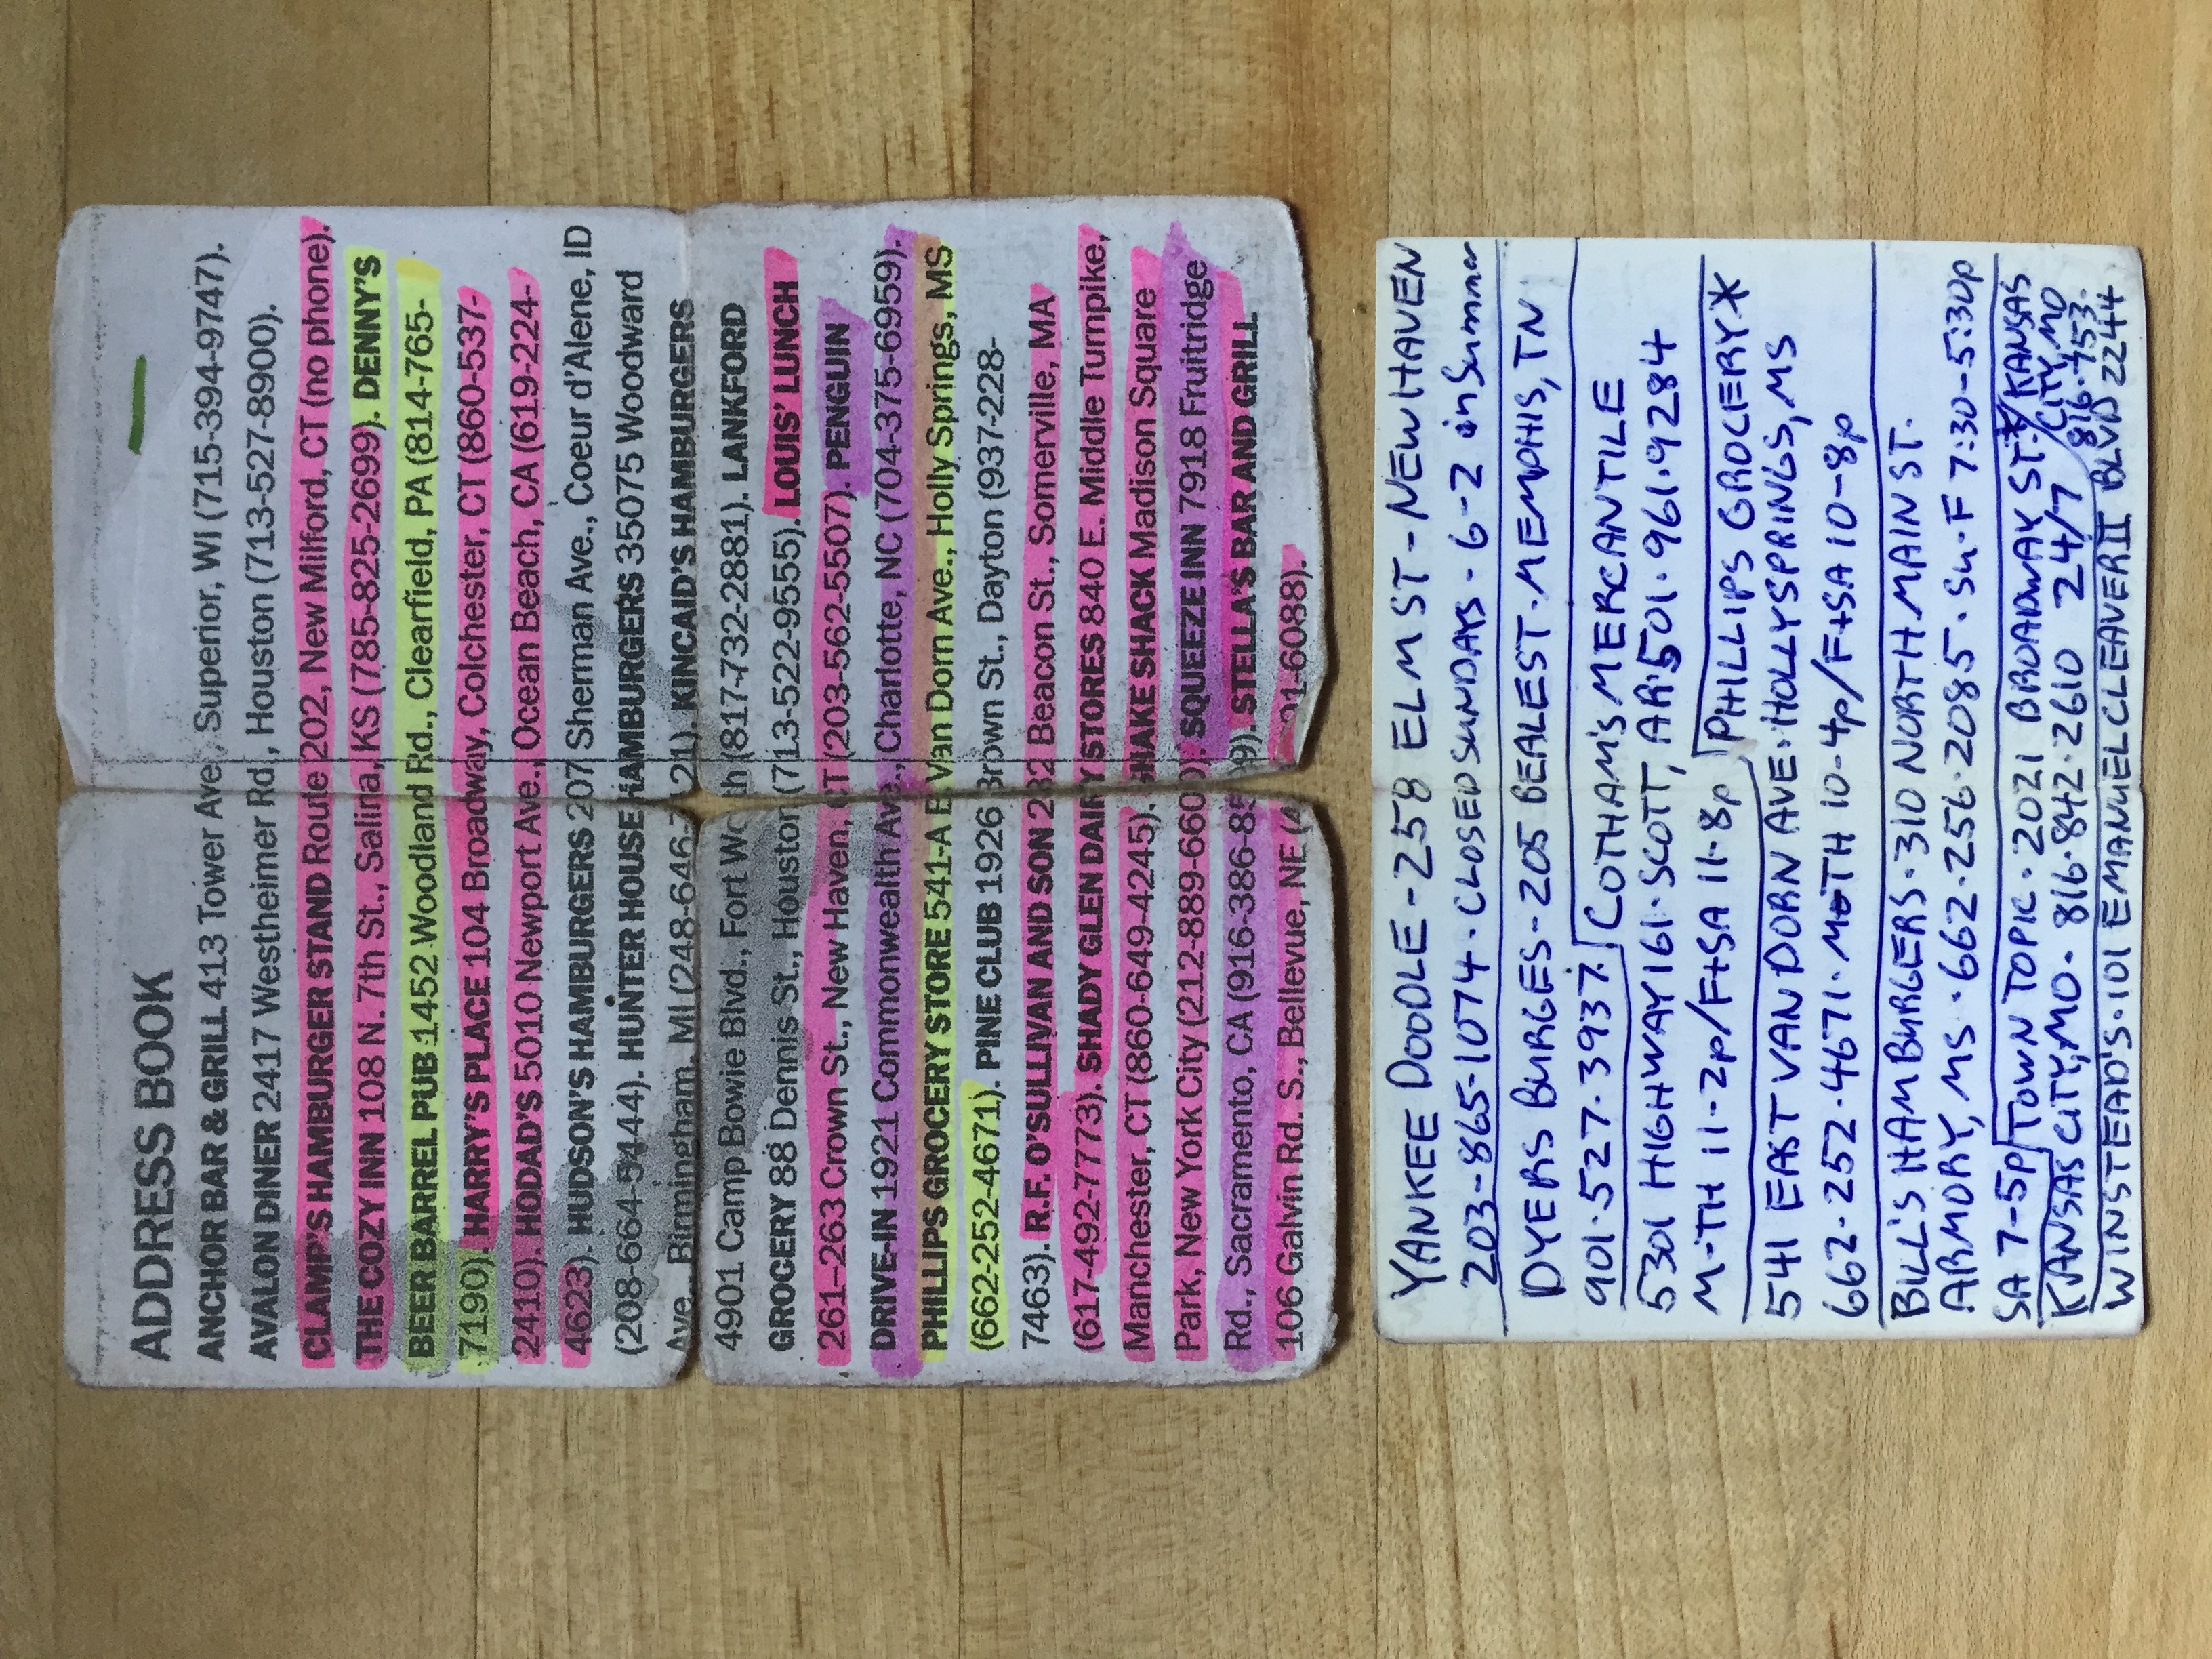 ADDRESS BOOK
ANCHOR BAR & GRILL 413 Tower Ave., Superior, WI (715-394-9747).
AVALON DINER 2417 Westheimer Rd., Houston (713-527-8900).
CLAMP'S HAMBURGER STAND Route 202, New Milford, CT (no phone).
THE COZY INN 108 N. 7th St., Salina, KS (785-825-2699). DENNY'S
BEER BARREL PUB 1452 Woodland Rd., Clearfield, PA (814-765-
7190). HARRY'S PLACE 104 Broadway, Colchester, CT (860-537-
2410). HODAD'S 5010 Newport Ave., Ocean Beach, CA (619-224-
4623). HUDSON'S HAMBURGERS 207 Sherman Ave., Coeur d'Alene, ID
(208-664-5444). HUNTER HOUSE HAMBURGERS 35075 Woodward
Ave., Birmingham, MI KINCAID'S HAMBURGERS
4901 Camp Bowie Blvd., Fort Worth (817-732-2881). LANKFORD
GROCERY 88 Dennis St., Houston (713-522-9555). LOUIS' LUNCH
261–263 Crown St., New Haven, CT (203-562-5507). PENGUIN
DRIVE-IN 1921 Commonwealth Ave., Charlotte, NC (704-375-6959).
PHILLIPS GROCERY STORE 541-A E Van Dorn Ave., Holly Springs, MS
(662-252-4671). PINE CLUB 1926 Brown St., Dayton (937-228-
7463). R.F. O'SULLIVAN AND SON 282 Beacon St., Somerville, MA
(617-492-7773). SHADY GLEN DAIRY STORES 840 E. Middle Turnpike,
Manchester, CT (860-649-4245). SHAKE SHACK Madison Square
Park, New York City (212-889-6600). SQUEEZE INN 7918 Fruitridge
Rd., Sacramento, CA STELLA'S BAR AND GRILL
106 Galvin Rd. S., Bellevue, NE
YANKEE DOODLE - 258 ELM ST - NEW HAVEN
203-865-1074 · CLOSED SUNDAYS - 6-2 in Summer
DYERS BURGES - 205 BEALE ST · MEMPHIS, TN
901·527·3937 COTHAM'S MERCANTILE
5301 HIGHWAY 161 · SCOTT, AR · 501·961·9284
M-TH 11-2p/F+SA 11-8p PHILLIPS GROCERY *
541 EAST VAN DORN AVE · HOLLY SPRINGS, MS
662·252·4671 · M-TH 10-4p/F+SA 10-8p
BILL'S HAMBURGERS · 310 NORTH MAIN ST.
ARMORY, MS · 662·256·2085 · Su-F 7:30-5:30p
SA 7-5p TOWN TOPIC · 2021 BROADWAY ST.*
KANSAS CITY, MO · 816·842·2610 24/7
WINSTEAD'S · 101 EMANUEL CLEAVER II BLVD
KANSAS
CITY, MO
816·753·
2244